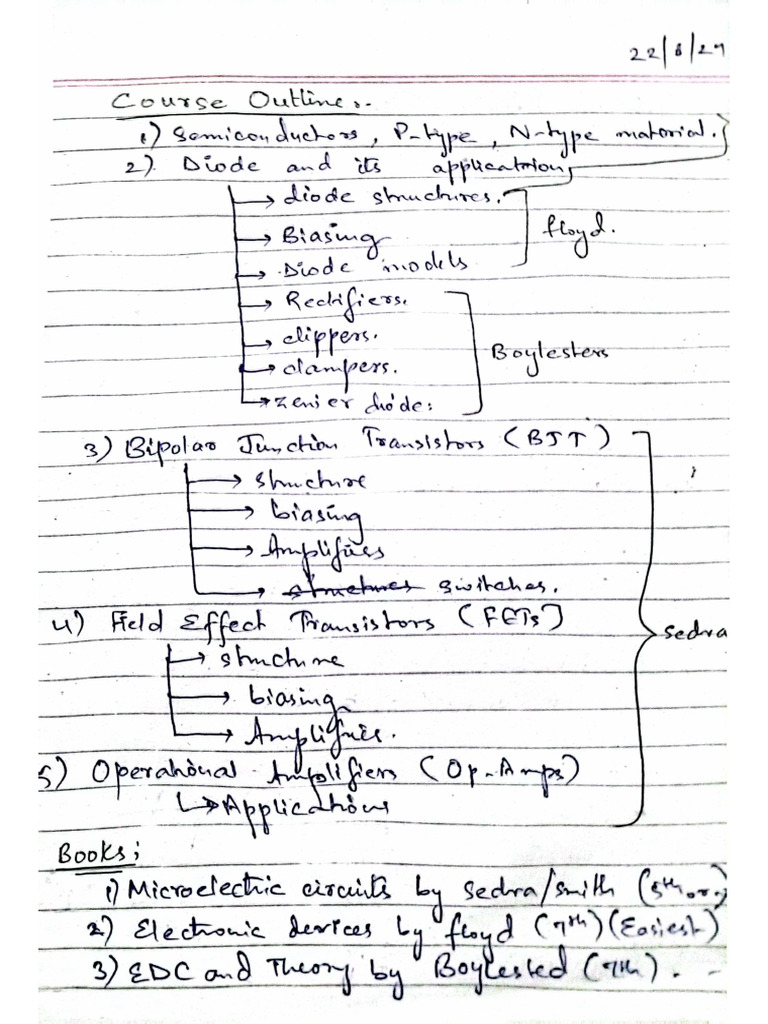 22/8/29
Course Outline:-
1) Semiconductors, P-type, N-type material.
2) Diode and its applications
→ diode structures.
→ Biasing
floyd.
→ Diode models
→ Rectifiers.
→ clippers.
Boylesters
→ clampers.
→ zenier diode:
3) Bipolar Junction Transistors (BJT)
→ structure
→ biasing
→ Amplifiers
→ structures switches.
4) Field Effect Transistors (FETs)
sedra
→ structure
→ biasing
→ Amplifiers.
5) Operational Amplifiers (Op-Amps)
→ Applications
Books:
1) Microelectric circuits by sedra/smith (5th or
2) Electronic devices by floyd (7th) (Easiest)
3) EDC and Theory by Boylested (7th).